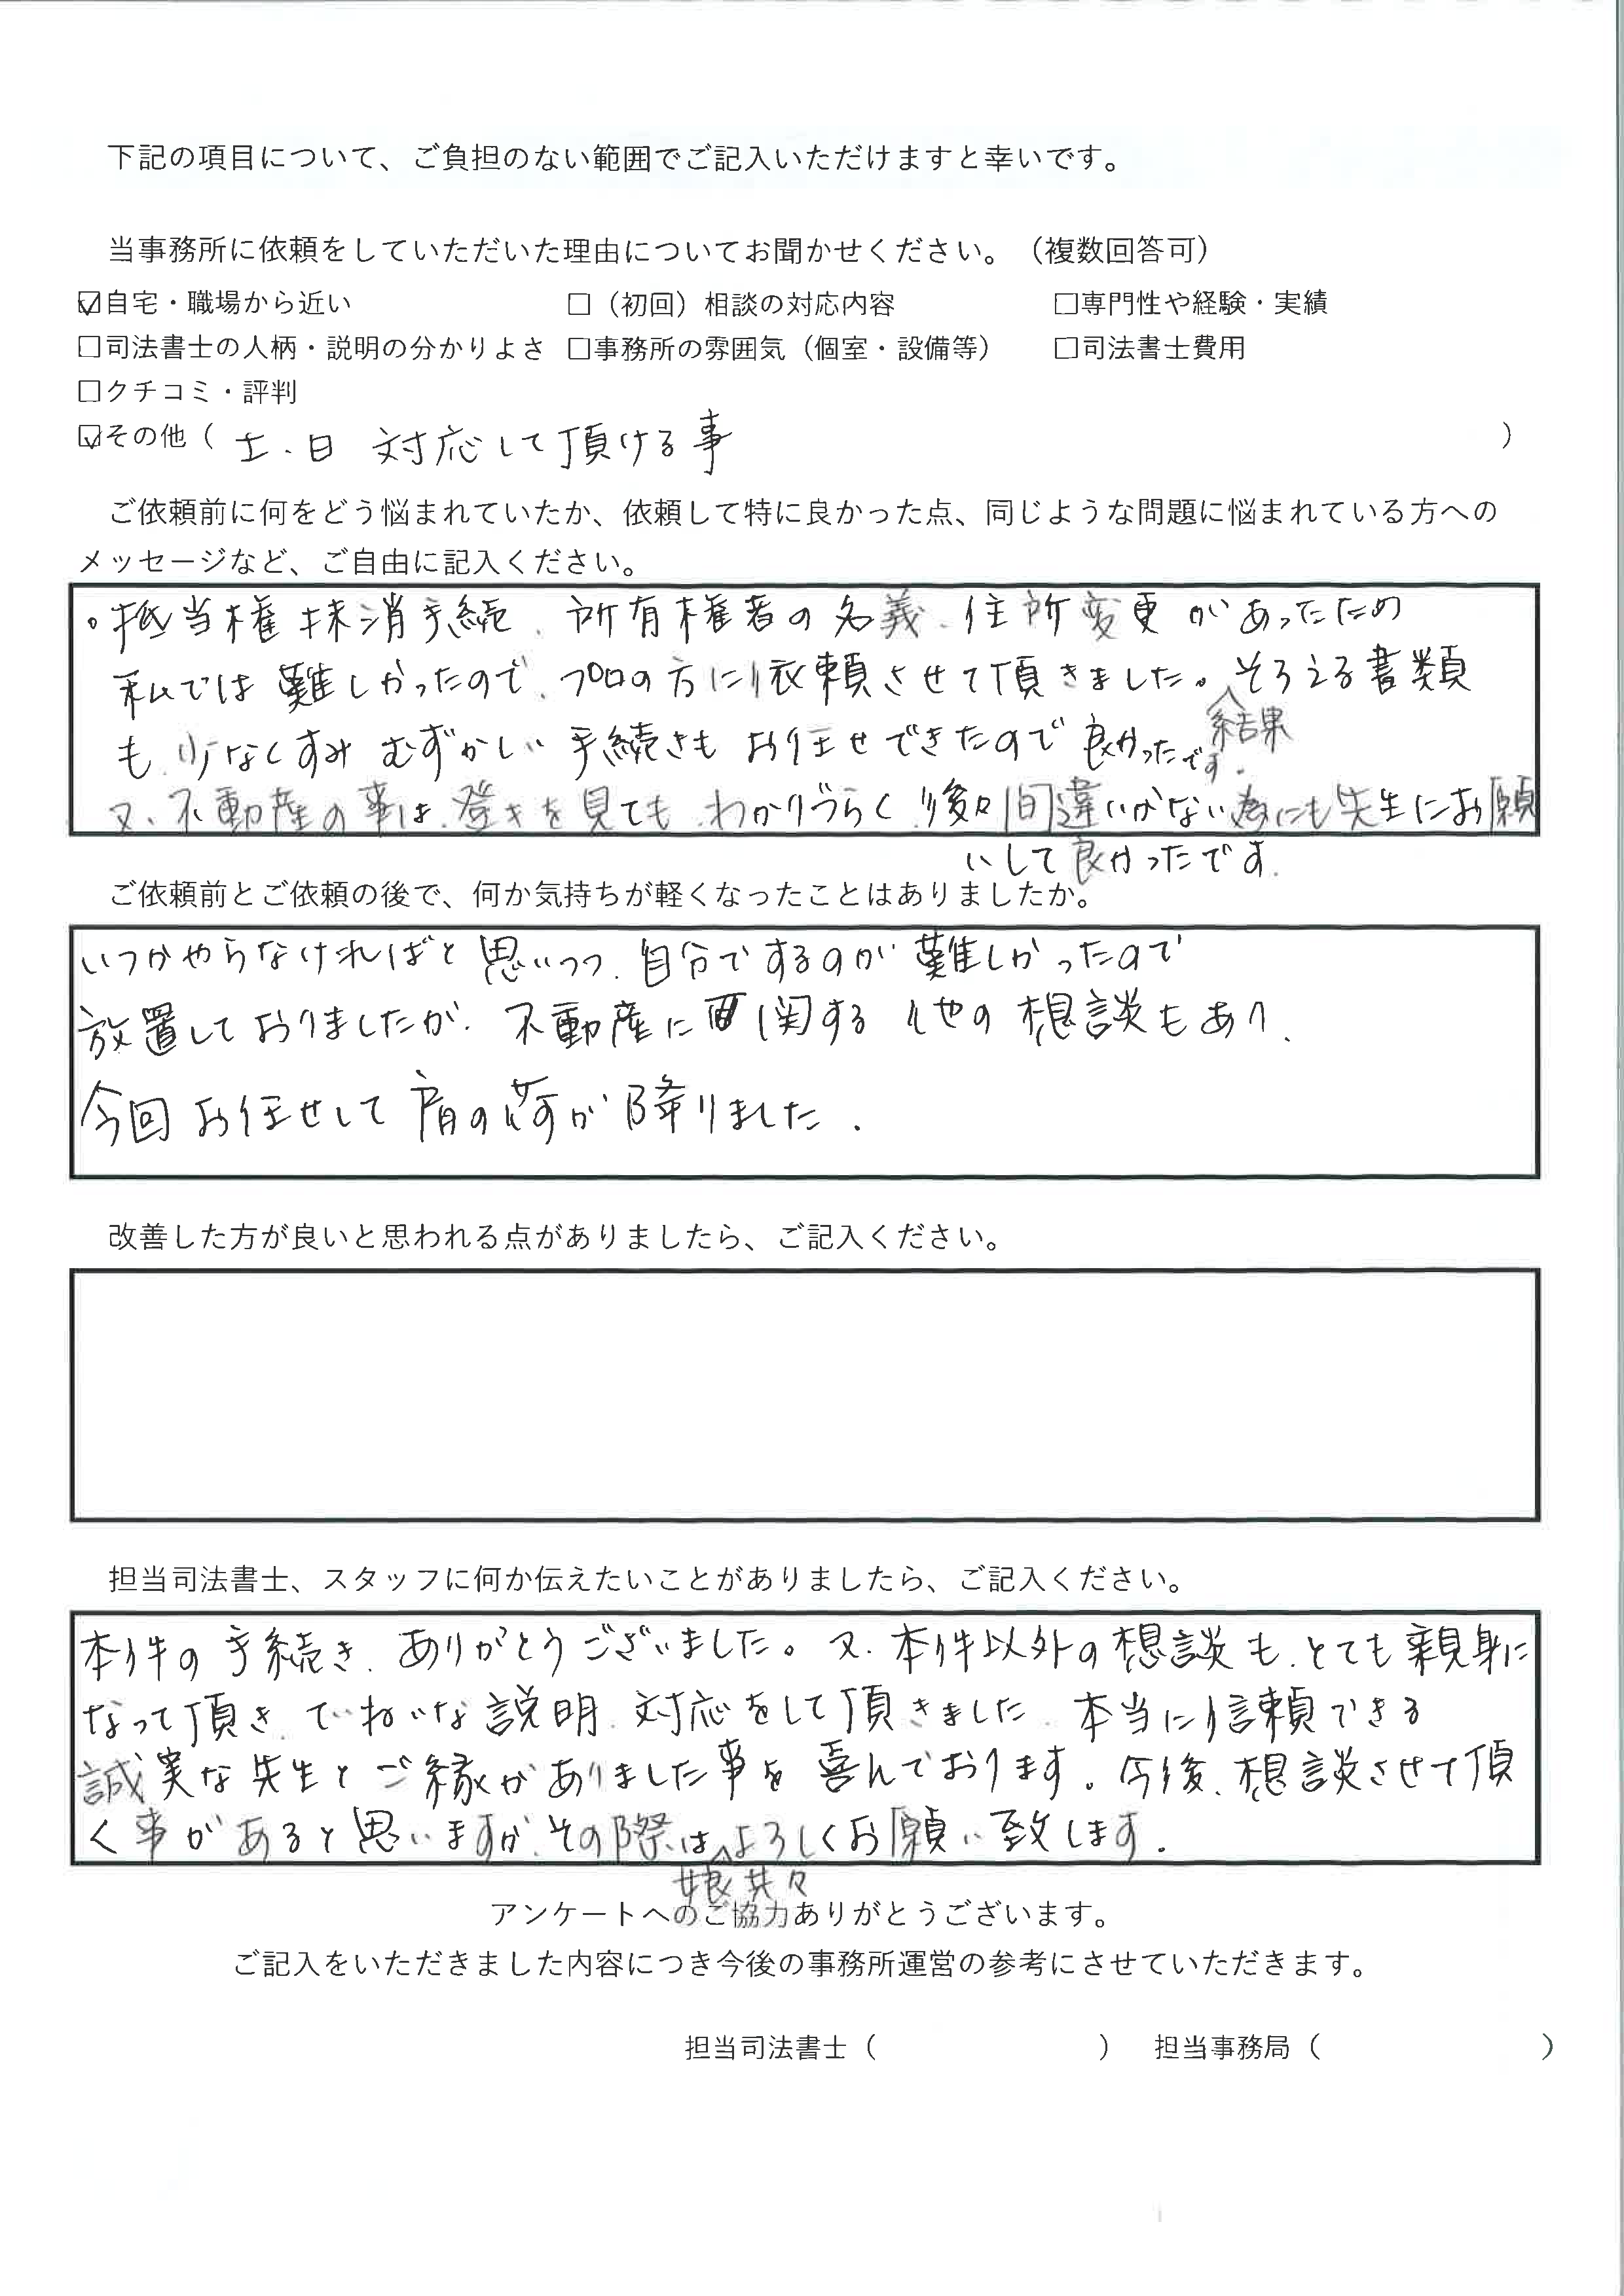 下記の項目について、ご負担のない範囲でご記入いただけますと幸いです。
当事務所に依頼をしていただいた理由についてお聞かせください。（複数回答可）
☑自宅・職場から近い　□（初回）相談の対応内容　□専門性や経験・実績
□司法書士の人柄・説明の分かりよさ　□事務所の雰囲気（個室・設備等）　□司法書士費用
□クチコミ・評判
☑その他（ 土、日 対応して頂ける事 ）
ご依頼前に何をどう悩まれていたか、依頼して特に良かった点、同じような問題に悩まれている方への
メッセージなど、ご自由に記入ください。
。抵当権抹消手続、所有権者の名義、住所変更があったため
私では難しかったので、プロの方に依頼させて頂きました。結果そろえる書類
も、少なくすみ むずかしい 手続きも お任せできたので 良かったです。
又、不動産の事は、登キを見ても、わかりづらく、後々間違いがない為にも先生にお願
いして良かったです。
ご依頼前とご依頼の後で、何か気持ちが軽くなったことはありましたか。
いつかやらなければと思いつつ、自分でするのが難しかったので
放置しておりましたが、不動産に関する他の想談もあり、
今回お任せして肩の荷が降りました。
改善した方が良いと思われる点がありましたら、ご記入ください。
担当司法書士、スタッフに何か伝えたいことがありましたら、ご記入ください。
本件の手続き、ありがとうございました。又、本件以外の想談も、とても親身に
なって頂き、ていねいな説明、対応をして頂きました。本当に信頼できる
誠実な先生とご縁がありました事を喜んでおります。今後、想談させて頂
く事があると思いますが、その際は娘共々よろしくお願い致します。
アンケートへのご協力ありがとうございます。
ご記入をいただきました内容につき今後の事務所運営の参考にさせていただきます。
担当司法書士（　　　　）　担当事務局（　　　　）